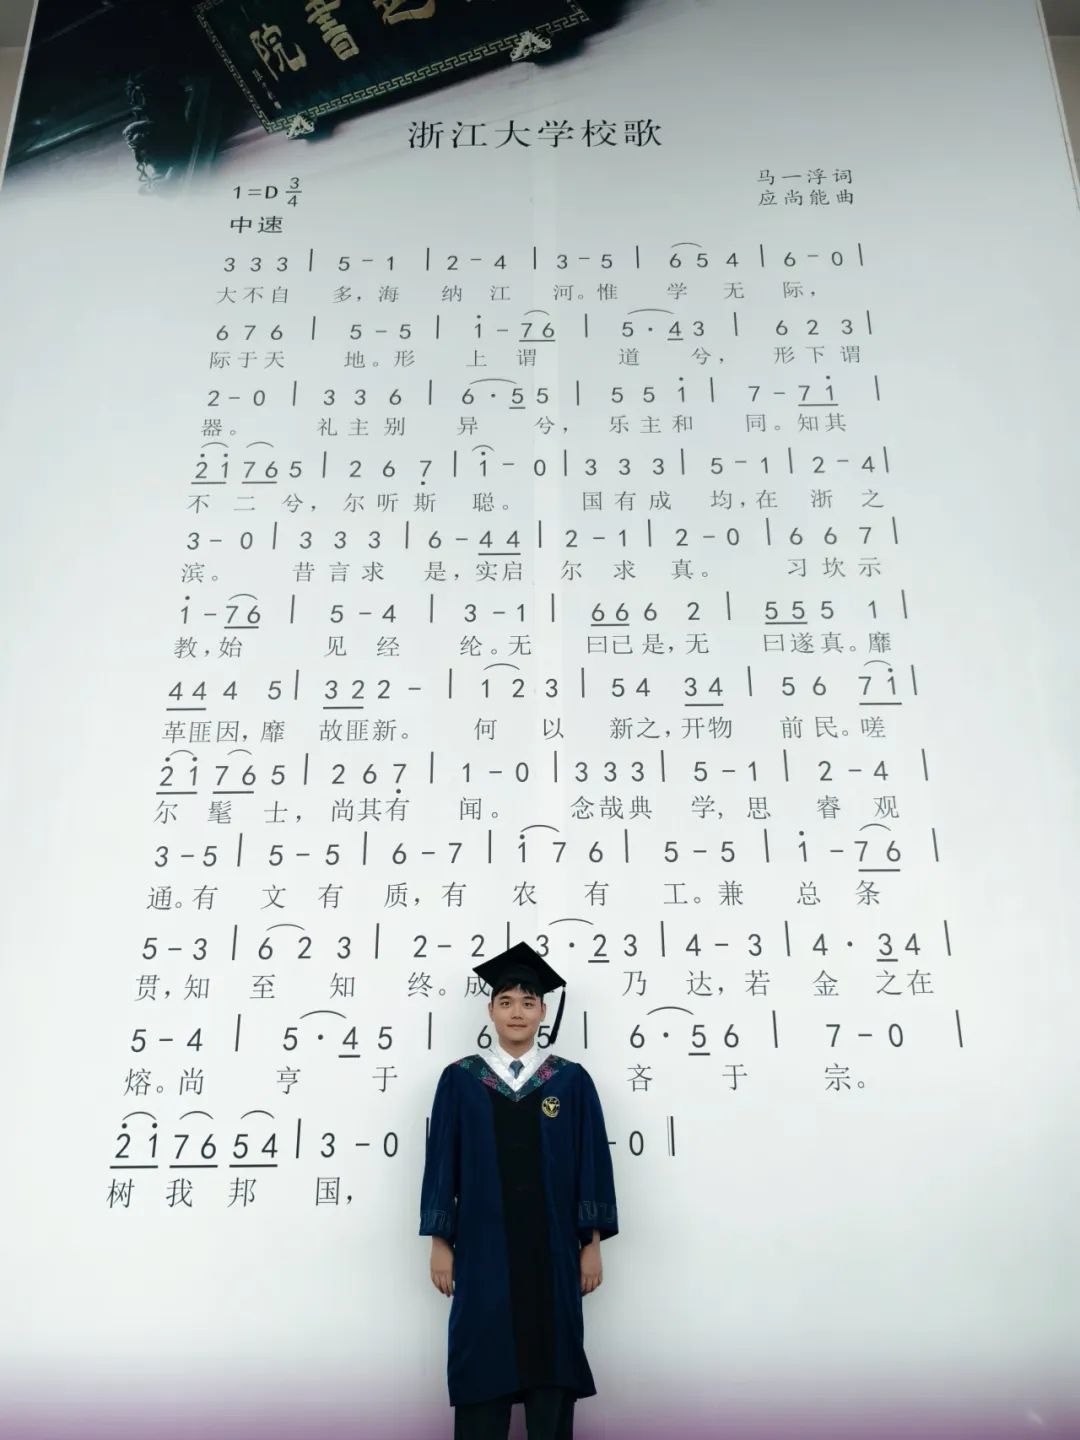 書院
浙江大学校歌
1=D 3/4
马一浮词
中速
应尚能曲
3 3 3 | 5 - 1 | 2 - 4 | 3 - 5 | 6 5 4 | 6 - 0 |
大不自 多，海 纳 江 河。惟 学 无 际，
6 7 6 | 5 - 5 | i - 7 6 | 5 · 4 3 | 6 2 3 |
际于天 地。形 上 谓 道 兮， 形下谓
2 - 0 | 3 3 6 | 6 · 5 5 | 5 5 i | 7 - 7 i |
器。 礼主别 异 兮， 乐主和 同。知其
2 i 7 6 5 | 2 6 7 | i - 0 | 3 3 3 | 5 - 1 | 2 - 4 |
不 二 兮，尔听斯 聪。 国有成 均，在 浙 之
3 - 0 | 3 3 3 | 6 - 4 4 | 2 - 1 | 2 - 0 | 6 6 7 |
滨。 昔言求 是，实启 尔 求 真。 习坎示
i - 7 6 | 5 - 4 | 3 - 1 | 6 6 6 2 | 5 5 5 1 |
教，始 见 经 纶。无 曰已是，无 曰遂真。靡
4 4 4 5 | 3 2 2 - | 1 2 3 | 5 4 3 4 | 5 6 7 i |
革匪因，靡 故匪新。 何 以 新之，开物 前民。嗟
2 i 7 6 5 | 2 6 7 | 1 - 0 | 3 3 3 | 5 - 1 | 2 - 4 |
尔 髦 士，尚其有 闻。 念哉典 学，思 睿 观
3 - 5 | 5 - 5 | 6 - 7 | i 7 6 | 5 - 5 | i - 7 6 |
通。有 文 有 质，有 农 有 工。兼 总 条
5 - 3 | 6 2 3 | 2 - 2 | 3 · 2 3 | 4 - 3 | 4 · 3 4 |
贯，知 至 知 终。成 乃 达，若 金 之在
5 - 4 | 5 · 4 5 | 6 5 | 6 · 5 6 | 7 - 0 |
熔。尚 亨 于 吝 于 宗。
2 i 7 6 5 4 | 3 - 0 | - 0 ‖
树 我 邦 国，